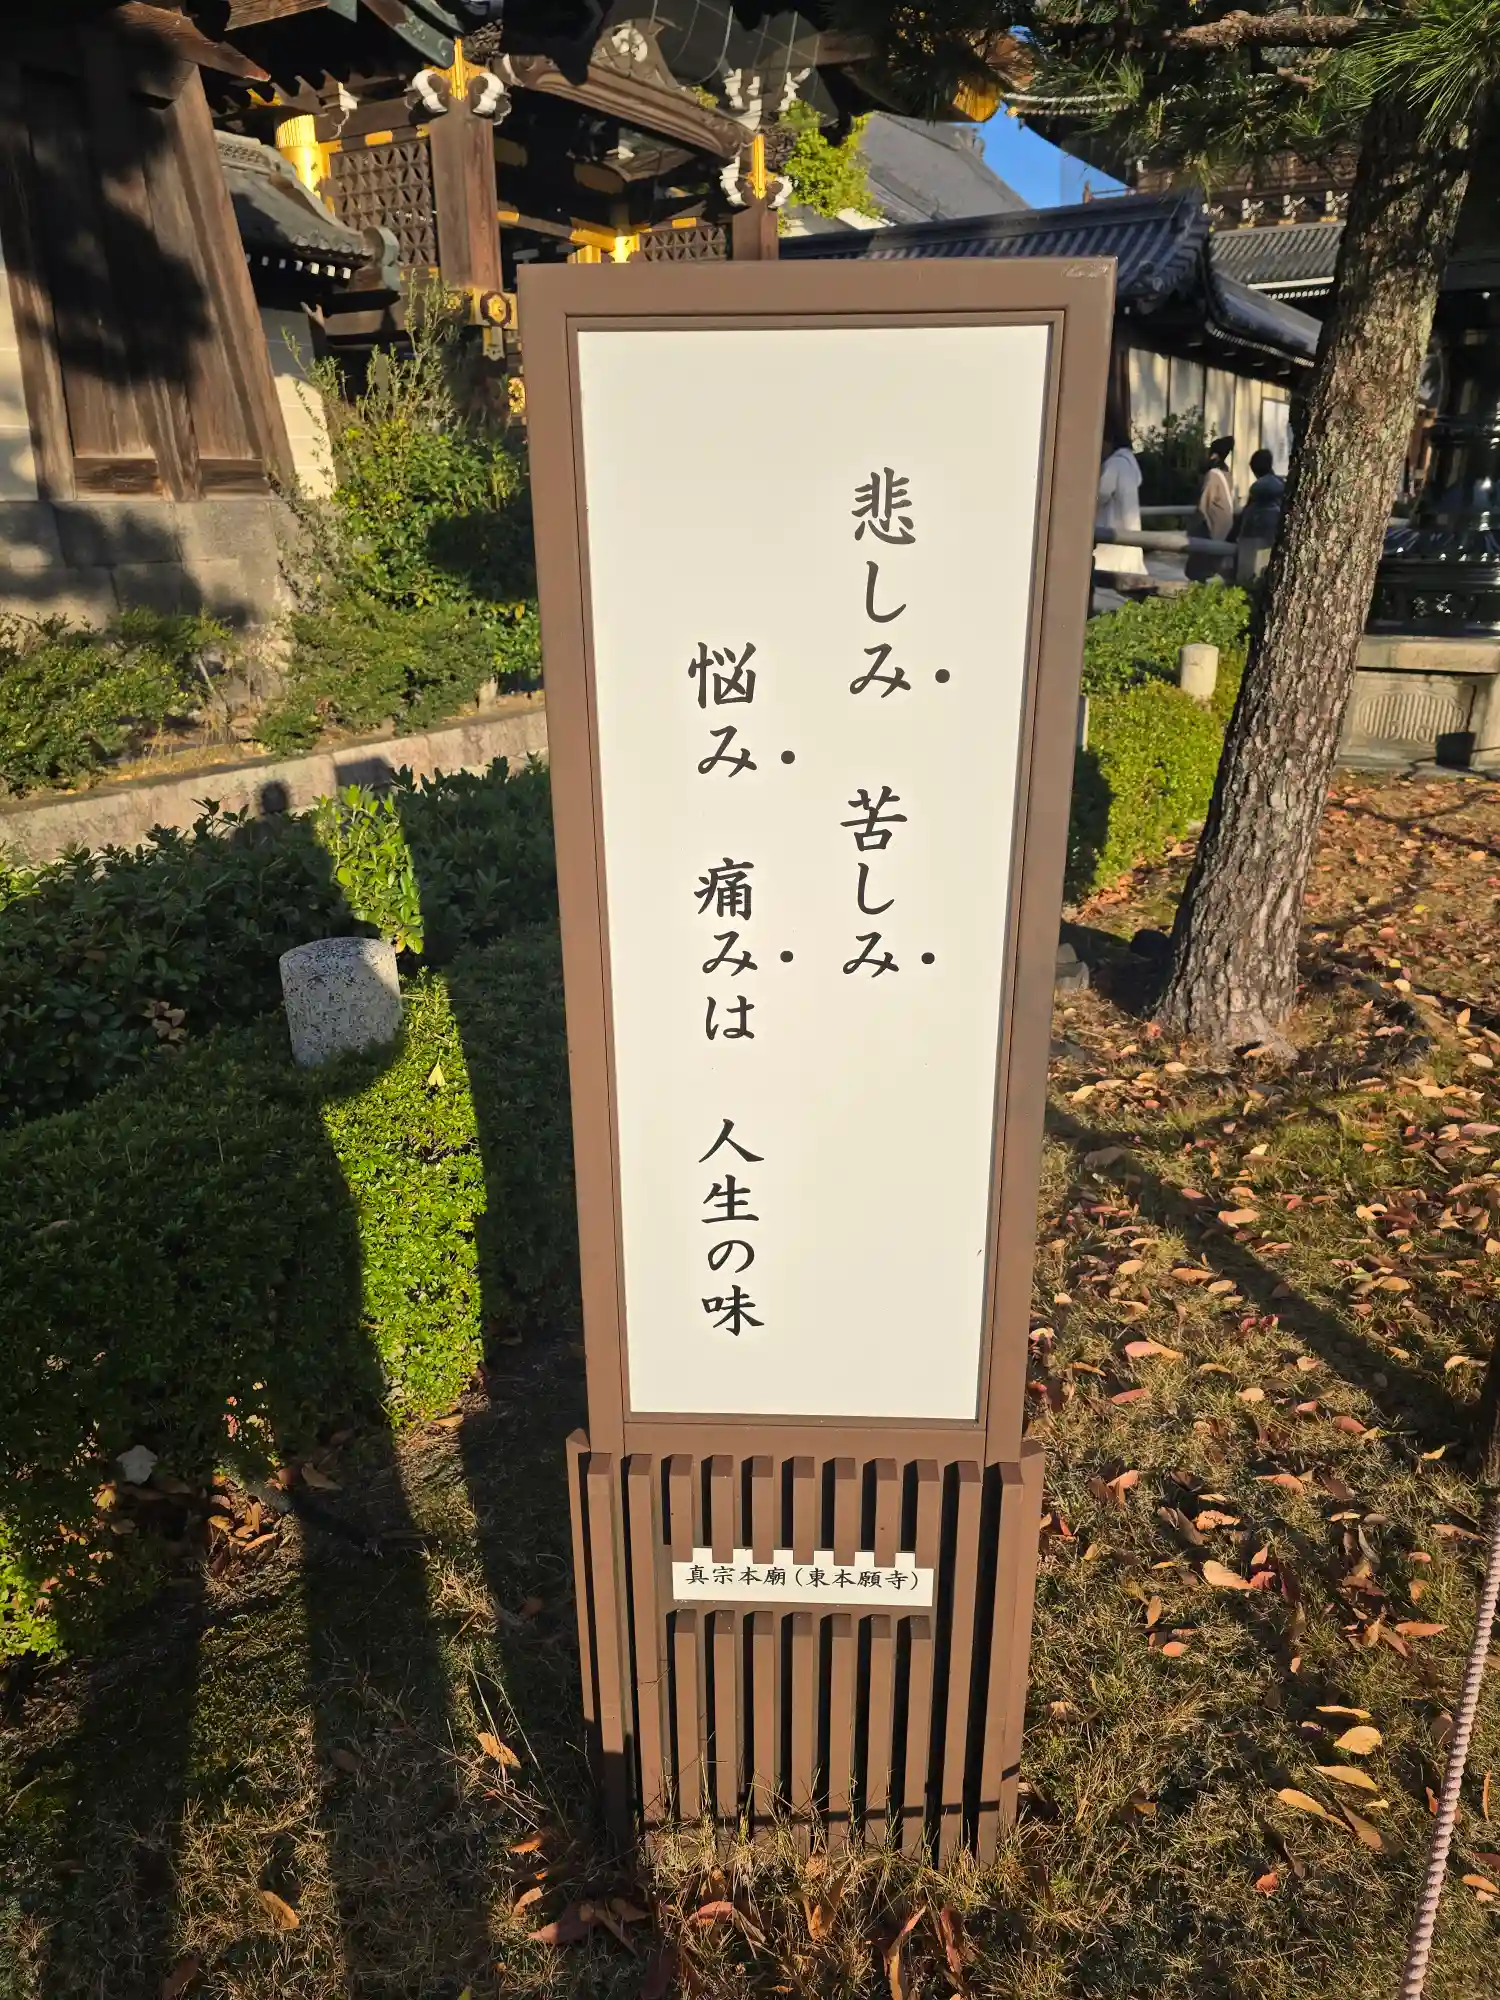 悲しみ 苦しみ
悩み 痛みは 人生の味
真宗本廟(東本願寺)